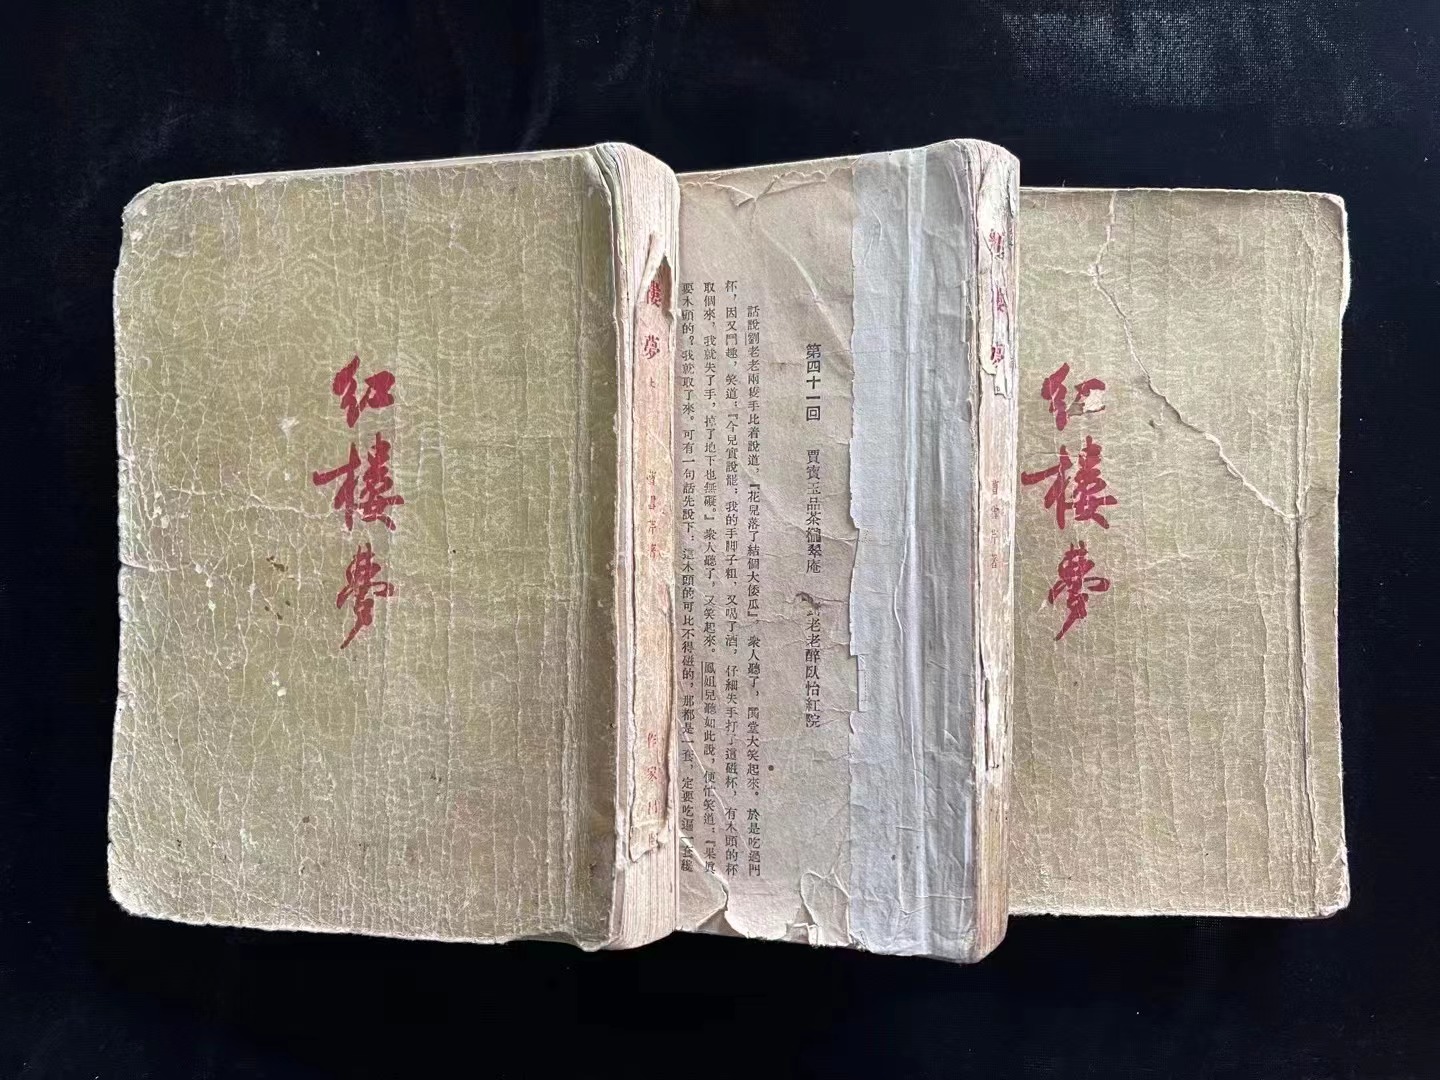 红楼梦
樓夢 上
曹雪芹著
作家出版
第四十一回 賈寶玉品茶櫳翠庵 劉老老醉臥怡紅院
話說劉老老兩隻手比着說道,『花兒落了結個大倭瓜』,衆人聽了,鬨堂大笑起來。於是吃過門
杯,因又鬥趣,笑道:『今兒實說罷;我的手脚子粗,又喝了酒,仔細失手打了這磁杯,有木頭的杯
取個來,我就失了手,掉了地下也無礙。』衆人聽了,又笑起來。鳳姐兒聽如此說,便忙笑道:『果眞
要木頭的?我就取了來。可有一句話先說下:這木頭的可比不得磁的,那都是一套,定要吃遍一套纔
夢
曹雪芹著
红楼梦